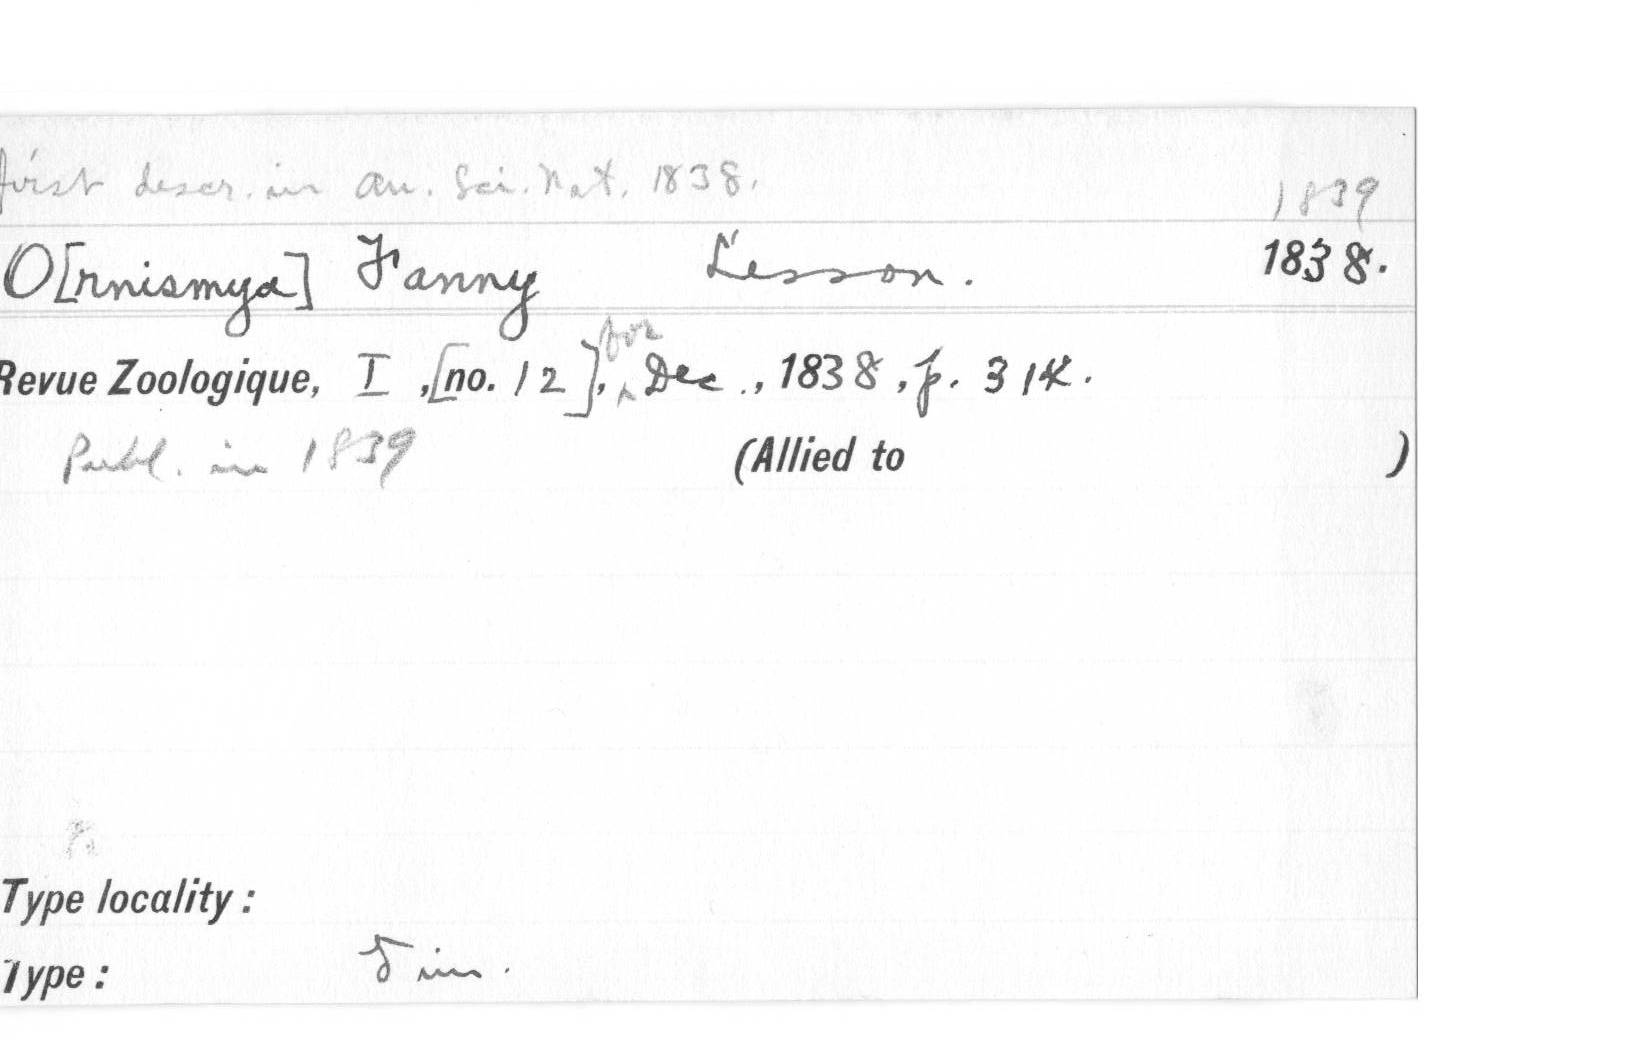 first descr. in an. Sci. Nat. 1838.
1839
O[rnismya] Fanny Lesson. 1838.
for
Revue Zoologique, I, [no. 12], ^ Dec., 1838, p. 314.
Publ. in 1839 (Allied to )
Type locality :
Type : im.